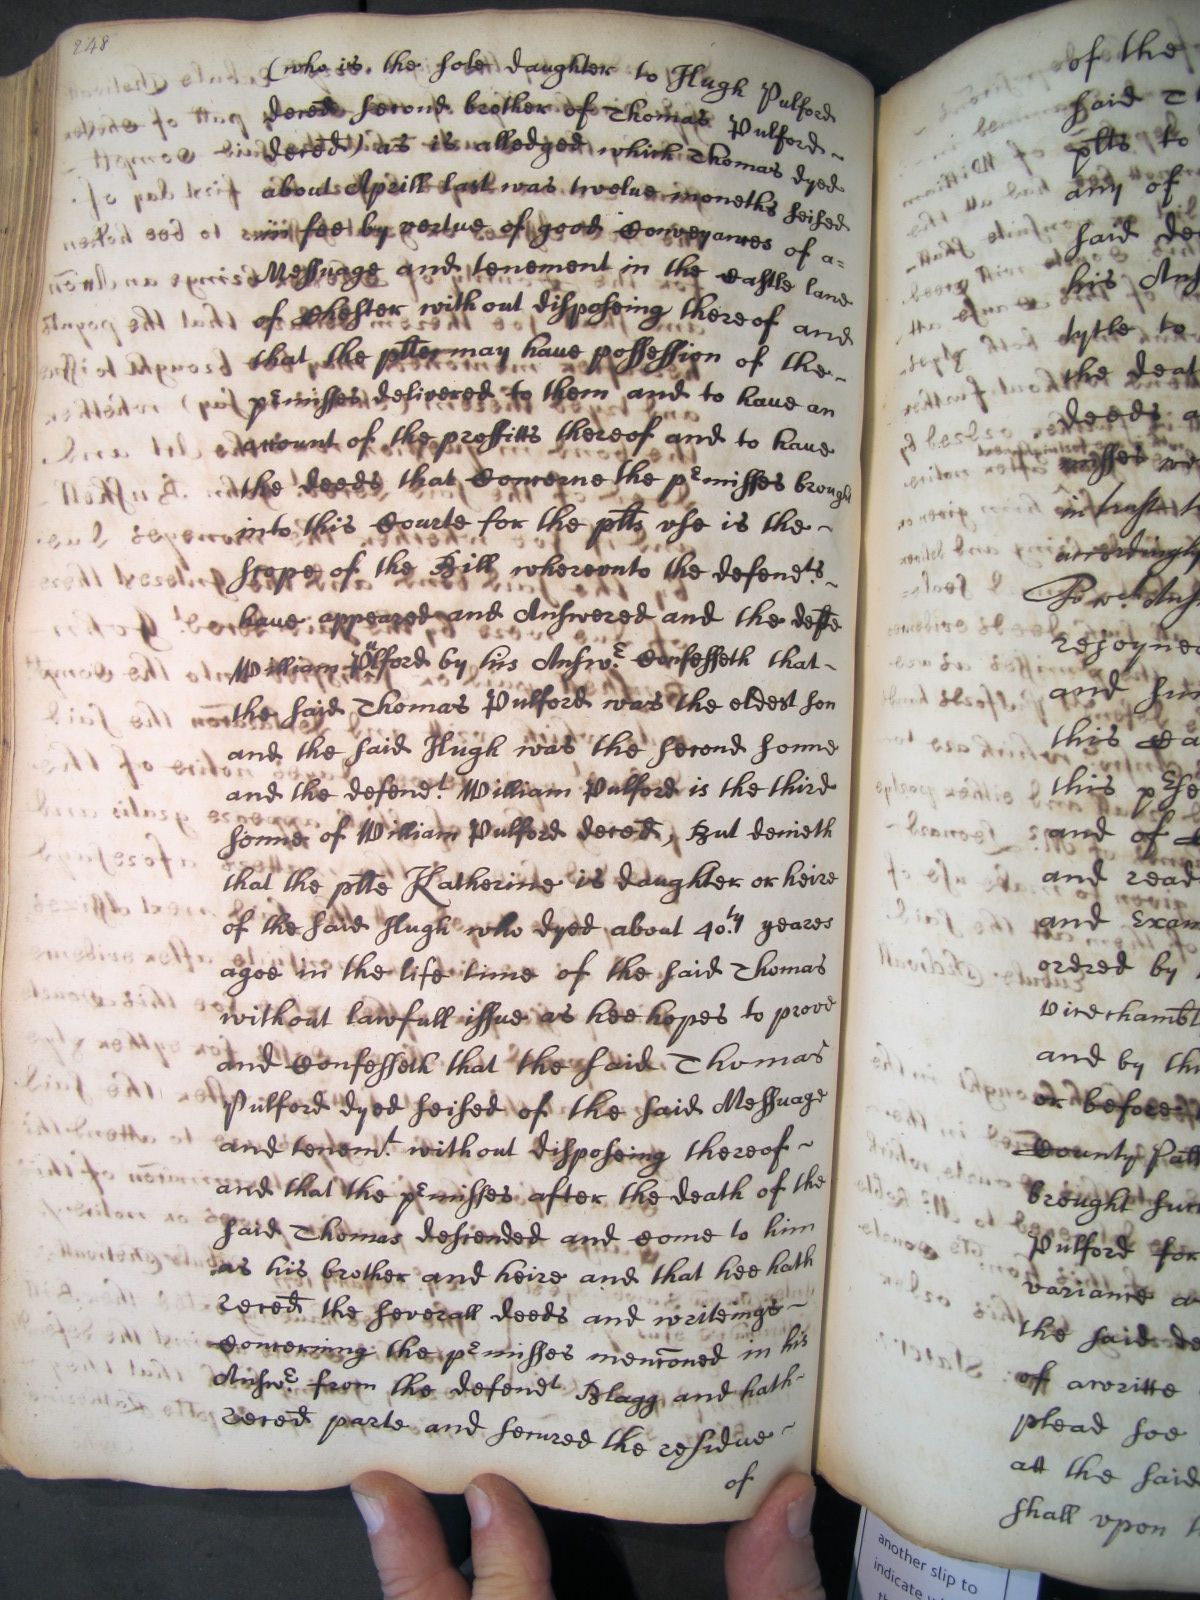 248
(who is the sole daughter to Hugh Pulford
deced second brother of Thomas Pulford ~
deced) as is alledged which Thomas dyed
about Aprill last was twelue moneths seised
in fee by vertue of good Conveyances of a=
Messuage and tenement in the Castle lane
of Chester without disposeing thereof and
that the pltes may haue possession of the~
prmisses delivered to them and to haue an
account of the proffitts thereof and to haue
the deeds that Concerne the prmisses brought
into this Courte for the plts vse is the ~
scope of the Bill wherevnto the defendts ~
haue appeared and Answered and the defte
William Pulford by his Answr Confesseth that ~
the said Thomas Pulford was the eldest son
and the said Hugh was the second sonne
and the defendt William Pulford is the third
sonne of William Pulford deced, But denieth
that the plte Katherine is daughter or heire
of the said Hugh who dyed about 40ty yeares
agoe in the life time of the said Thomas
without lawfull issue as hee hopes to prove
and Confesseth that the said Thomas
Pulford dyed seised of the said Messuage
and tenemt without disposeing thereof ~
and that the prmisses after the death of the
said Thomas descended and Come to him
as his brother and heire and that hee hath
reced the severall deeds and writeings ~
Concerning the prmisses menconed in his
Answr from the defendt Blagg and hath ~
reced parte and secured the residue ~
of
of the
said Th
plts to
any of
said de
his Ans
tytle to
the deat
deeds a
misses
in trust t
accordingly
To wch Ans
rejoyned
and
this Ca
this prse
and of
and read
and Exam
ordred by
vicechambl
and by th
or before
County Pall
brought
Pulford for
variance a
the said de
of awritte
plead soe
att the said
shall vpon
another slip to
indicate